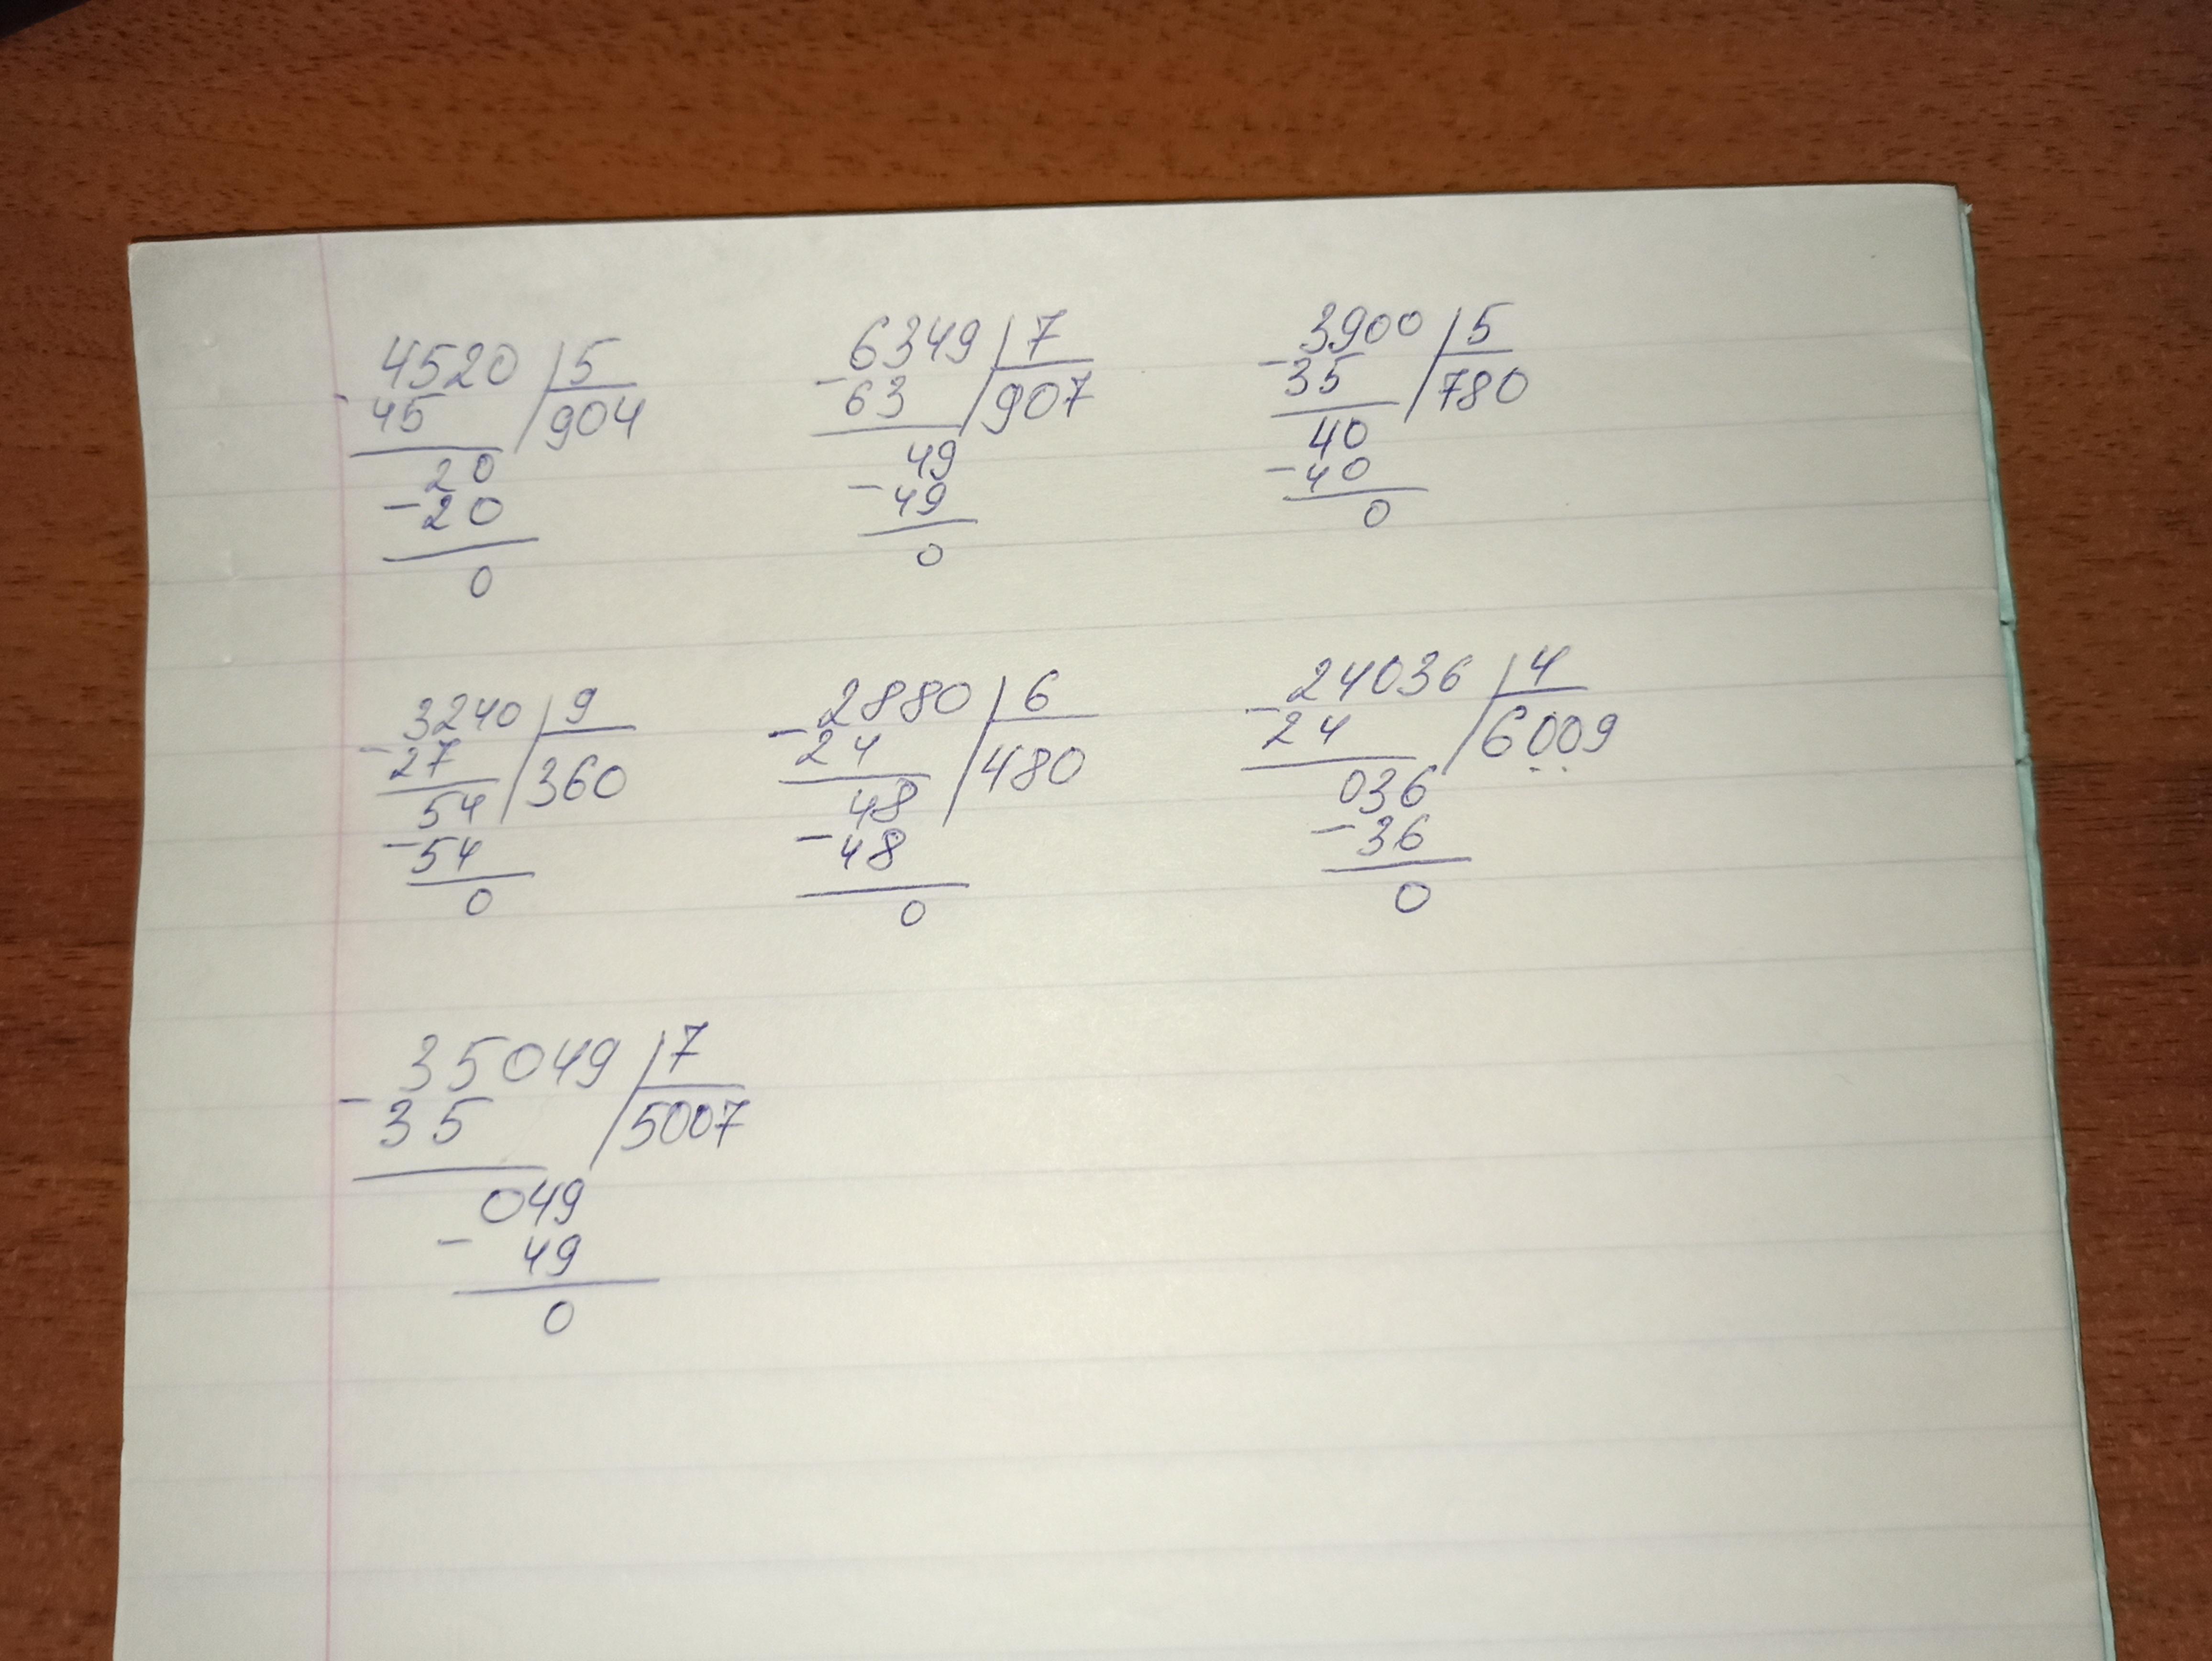 4520 | 5
- 45 | 904
20
- 20
0
6349 | 7
- 63 | 907
49
- 49
0
3900 | 5
- 35 | 780
40
- 40
0
3240 | 9
- 27 | 360
54
- 54
0
2880 | 6
- 24 | 480
48
- 48
0
24036 | 4
- 24 | 6009
036
- 36
0
35049 | 7
- 35 | 5007
049
- 49
0